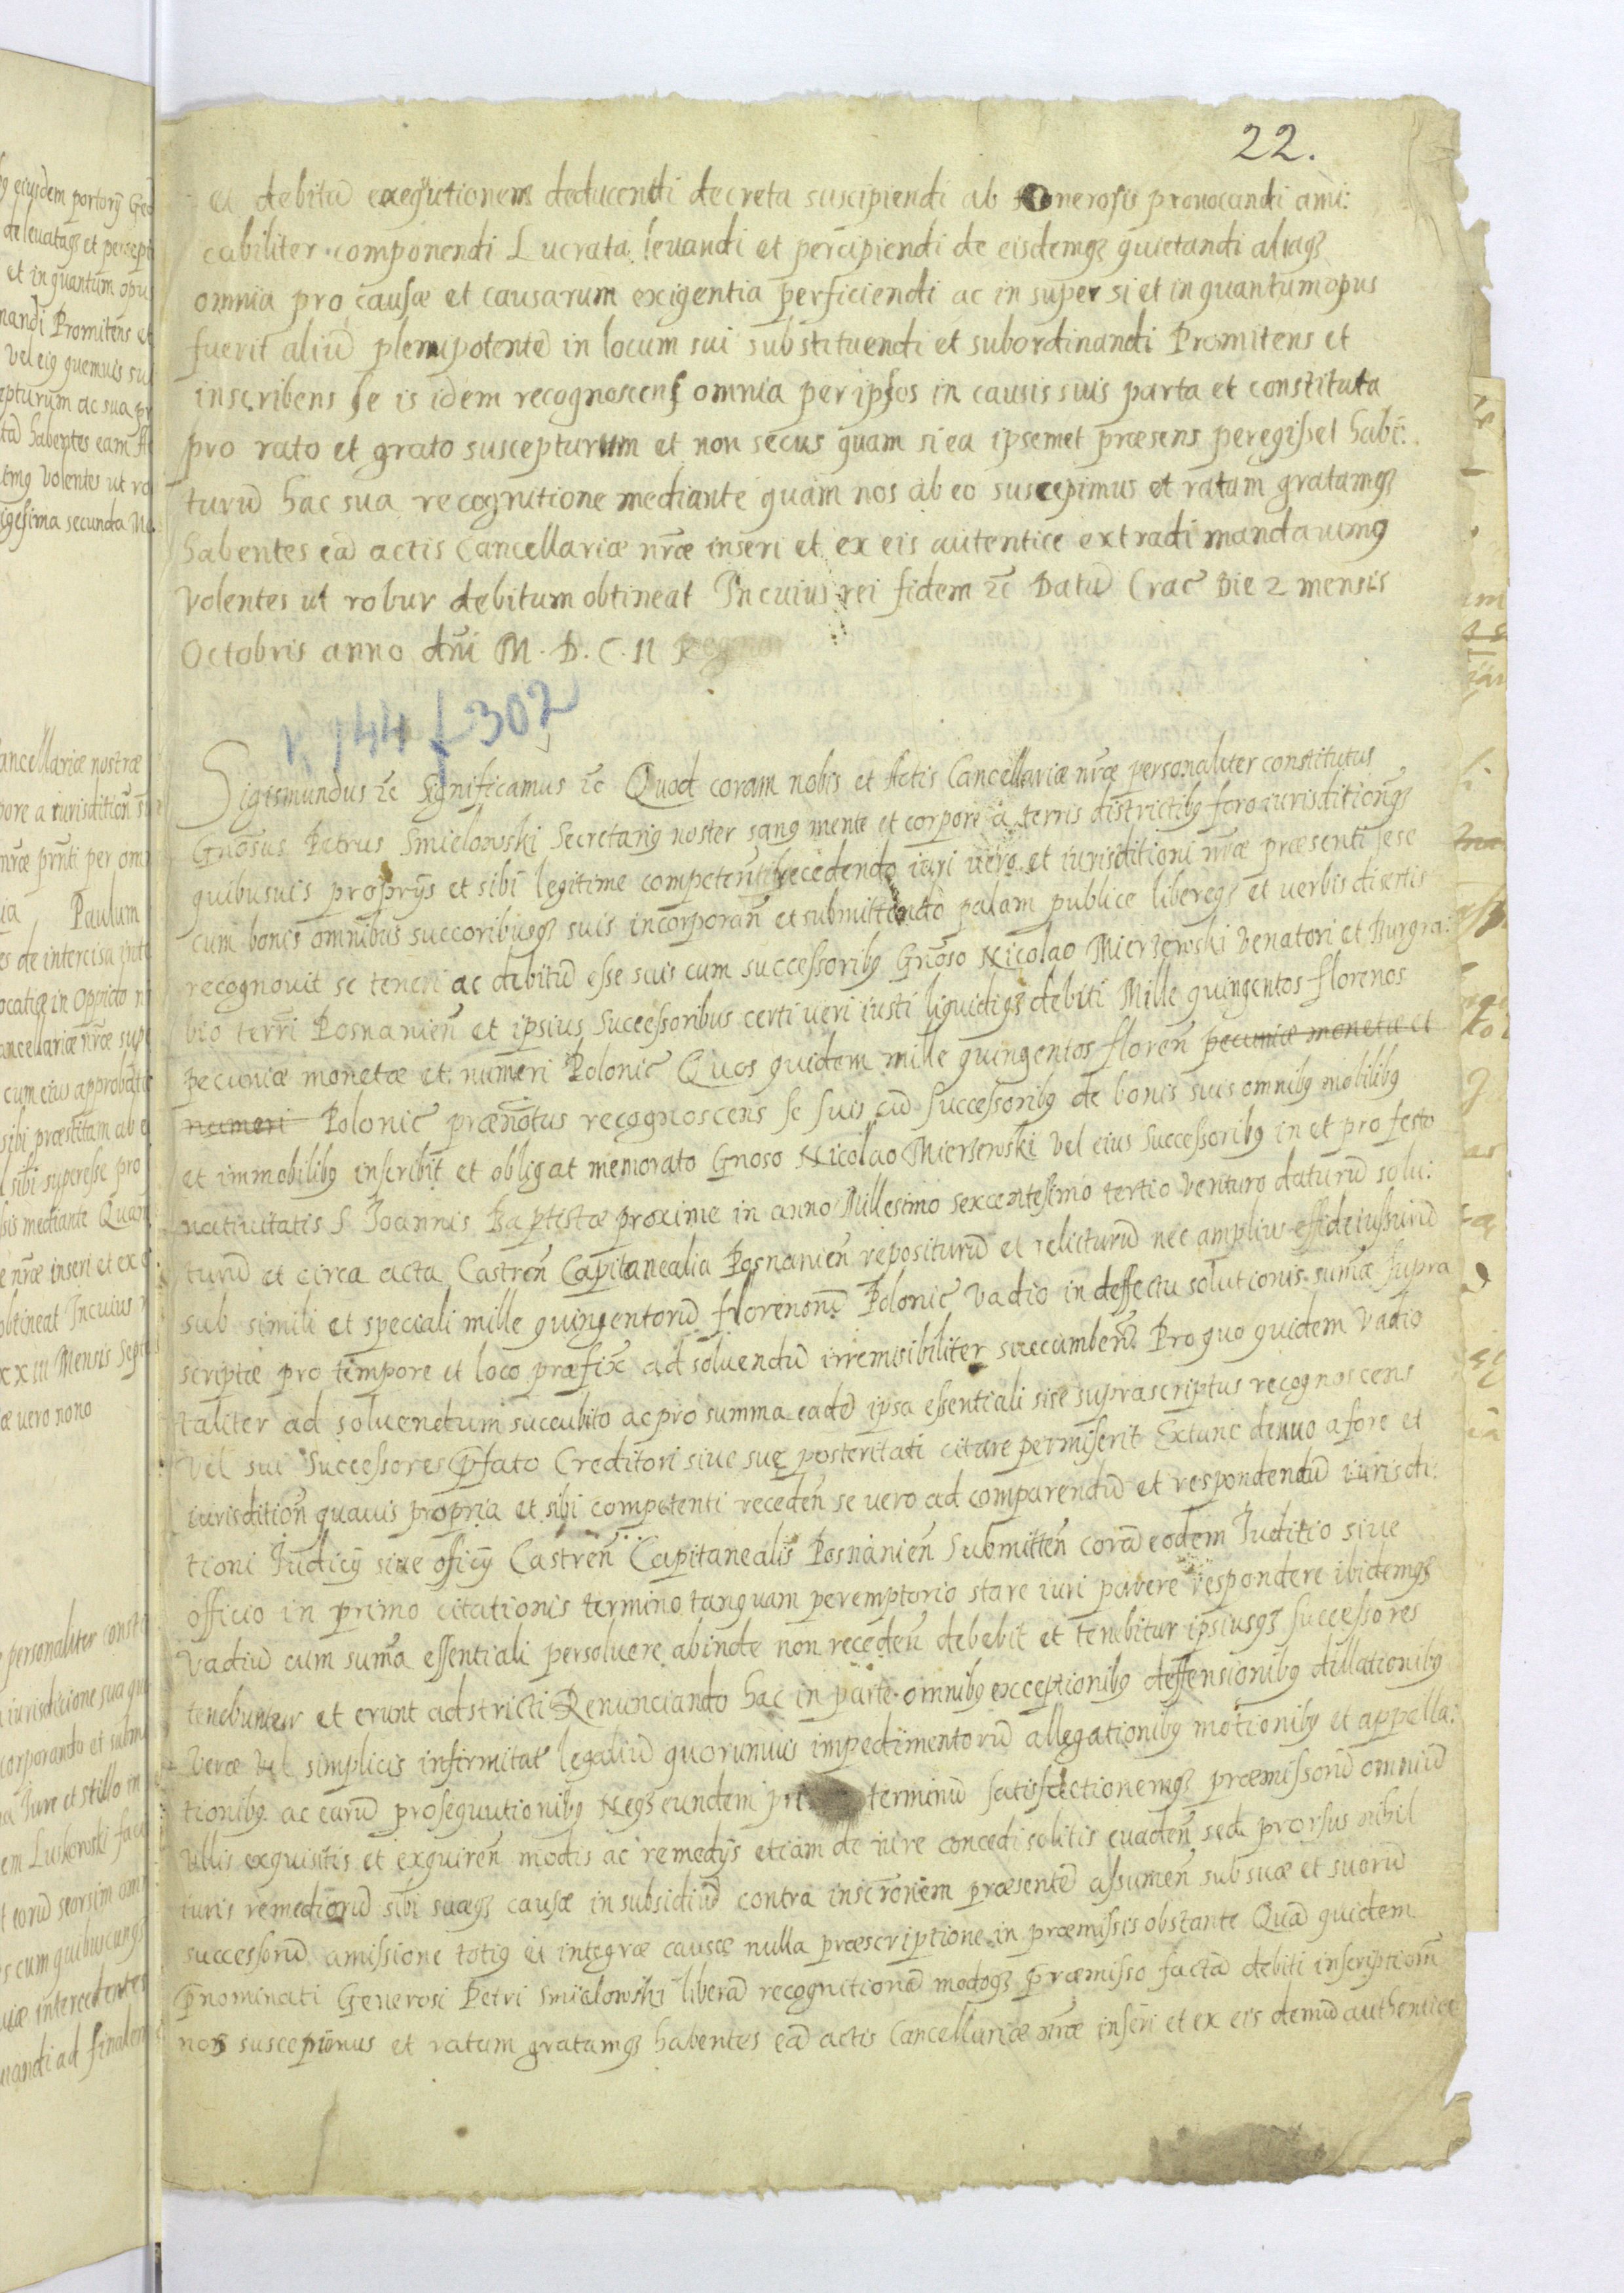 22.
et debitū exequtionem deducendi decreta suscipiendi ab onerosis prouocandi ami:
cabiliter componendi Lucrata leuandi et percipiendi de eisdemq₃ quietandi aliaq₃
omnia pro causæ et causarum exigentia perficiendi ac in super si et in quantum opus
fuerit aliū plenipotentē in locum sui substituendi et subordinandi Promitens et
inscribens se is idem recognoscens omnia per ipsos in causis suis parta et constituta
pro rato et grato suscepturum et non secus quam si ea ipsemet præsens peregisset habi:
turū hac sua recognitione mediante quam nos ab eo suscepimus et ratam gratamq₃
habentes eā actis Cancellariæ nr̄æ inseri et ex eis autentice extradi mandauimq
volentes ut robur debitum obtineat In cuius rei fidem ꝛc Datū Crac Die 2 mensis
Octobris anno dn̄i M. D. C. II
144 f 302
Sigismundus ꝛc Significamus ꝛc Quod coram nobis et Actis Cancellariæ nr̄æ personaliter constitutus
Gnōsus Petrus Smielowski Secretariq noster sanq mente et corpore a terris districtibq foro iurisditionq₃
quibusuis proprijs et sibi legitime competen̄tibq recedendo iuri uero et iurisditioni nr̄æ præsenti sese
cum bonis omnibus succoribusq₃ suis incorporan̄ et submittendo palam publice libereq₃ et uerbis disertis
recognouit se teneri ac debitū esse suis cum successoribq Gnōso Nicolao Mierzewski Venatori et Burgra:
bio terrī Posnanien̄ et ipsius Successoribus certi ueri iusti liquidiq₃ debiti Mille quingentos florenos
pecuniæ monetæ et numeri Polonic Quos quidem mille quingentos floren̄ pecuniæ monetæ et
numeri Polonic præn̄otus recognoscens se suis cū successoribq de bonis suis omnibq mobilibq
et immobilibq inscribit et obligat memorato Gnoso Nicolao Mierzewski vel eius Successoribq in et pro festo
natiuitatis S Joannis Baptistæ proxime in anno Millesimo sexcentesimo tertio venturo daturū solu:
turū et circa acta Castren̄ Capitanealia Posnanien̄ repositurū et relicturū nec amplius effideiussurū
sub simili et speciali mille quingentorū florenorū Polonic vadio in deffectu solutionis sumæ supra
scriptæ pro tempore et loco præfix̄ ad soluendū irremisibiliter succumben̄ Pro quo quidem vadio
taliter ad soluendum succubito ac pro summa eadē ipsa essentiali si se suprascriptus recognoscens
vel sui Successores p̄fato Creditori siue suę posteritati citare permiserit Extunc denuo a fore et
iurisdition̄ quauis propria et sibi competenti receden̄ se vero ad comparendū et respondendū iurisdi:
tioni Judicij siue oficij Castren̄ Capitanealis Posnanien̄ Submitten̄ corā eodem Juditio siue
officio in primo citationis termino tanquam peremptorio stare iuri parere respondere ibidemq₃
vadiū cum suma essentiali persoluere abinde non receden̄ debebit et tenebitur ipsiusq₃ successores
tenebuntur et erunt adstricti Renunciando hac in parte omnibq exceptionibq deffensionibq dillationibq
veræ vel simplicis infirmitat legaliū quorumuis impedimentorū allegationibq motionibq et appella:
tionibq ac earū prosequutionibq Neq₃ eundem terminū satisfactionemq₃ præmissorū omniū
ullis exquisitis et exquiren̄ modis ac remedijs etiam de iure concedi solitis euaden̄ sed prorsus nihil
iuris remediorū sibi suæq₃ causæ in subsidiū contra inscrōnem præsentē assumen̄ sub suæ et suorū
successorū amissione totiq et integræ causæ nulla præscriptione in præmissis obstante Quā quidem
p̄nominati Generosi Petri Smielowski liberā recognitionē modoq₃ præmisso factā debiti inscription̄
nos suscepimus et ratam gratamq₃ habentes eā actis Cancellariæ nr̄æ inseri et ex eis demū authentice